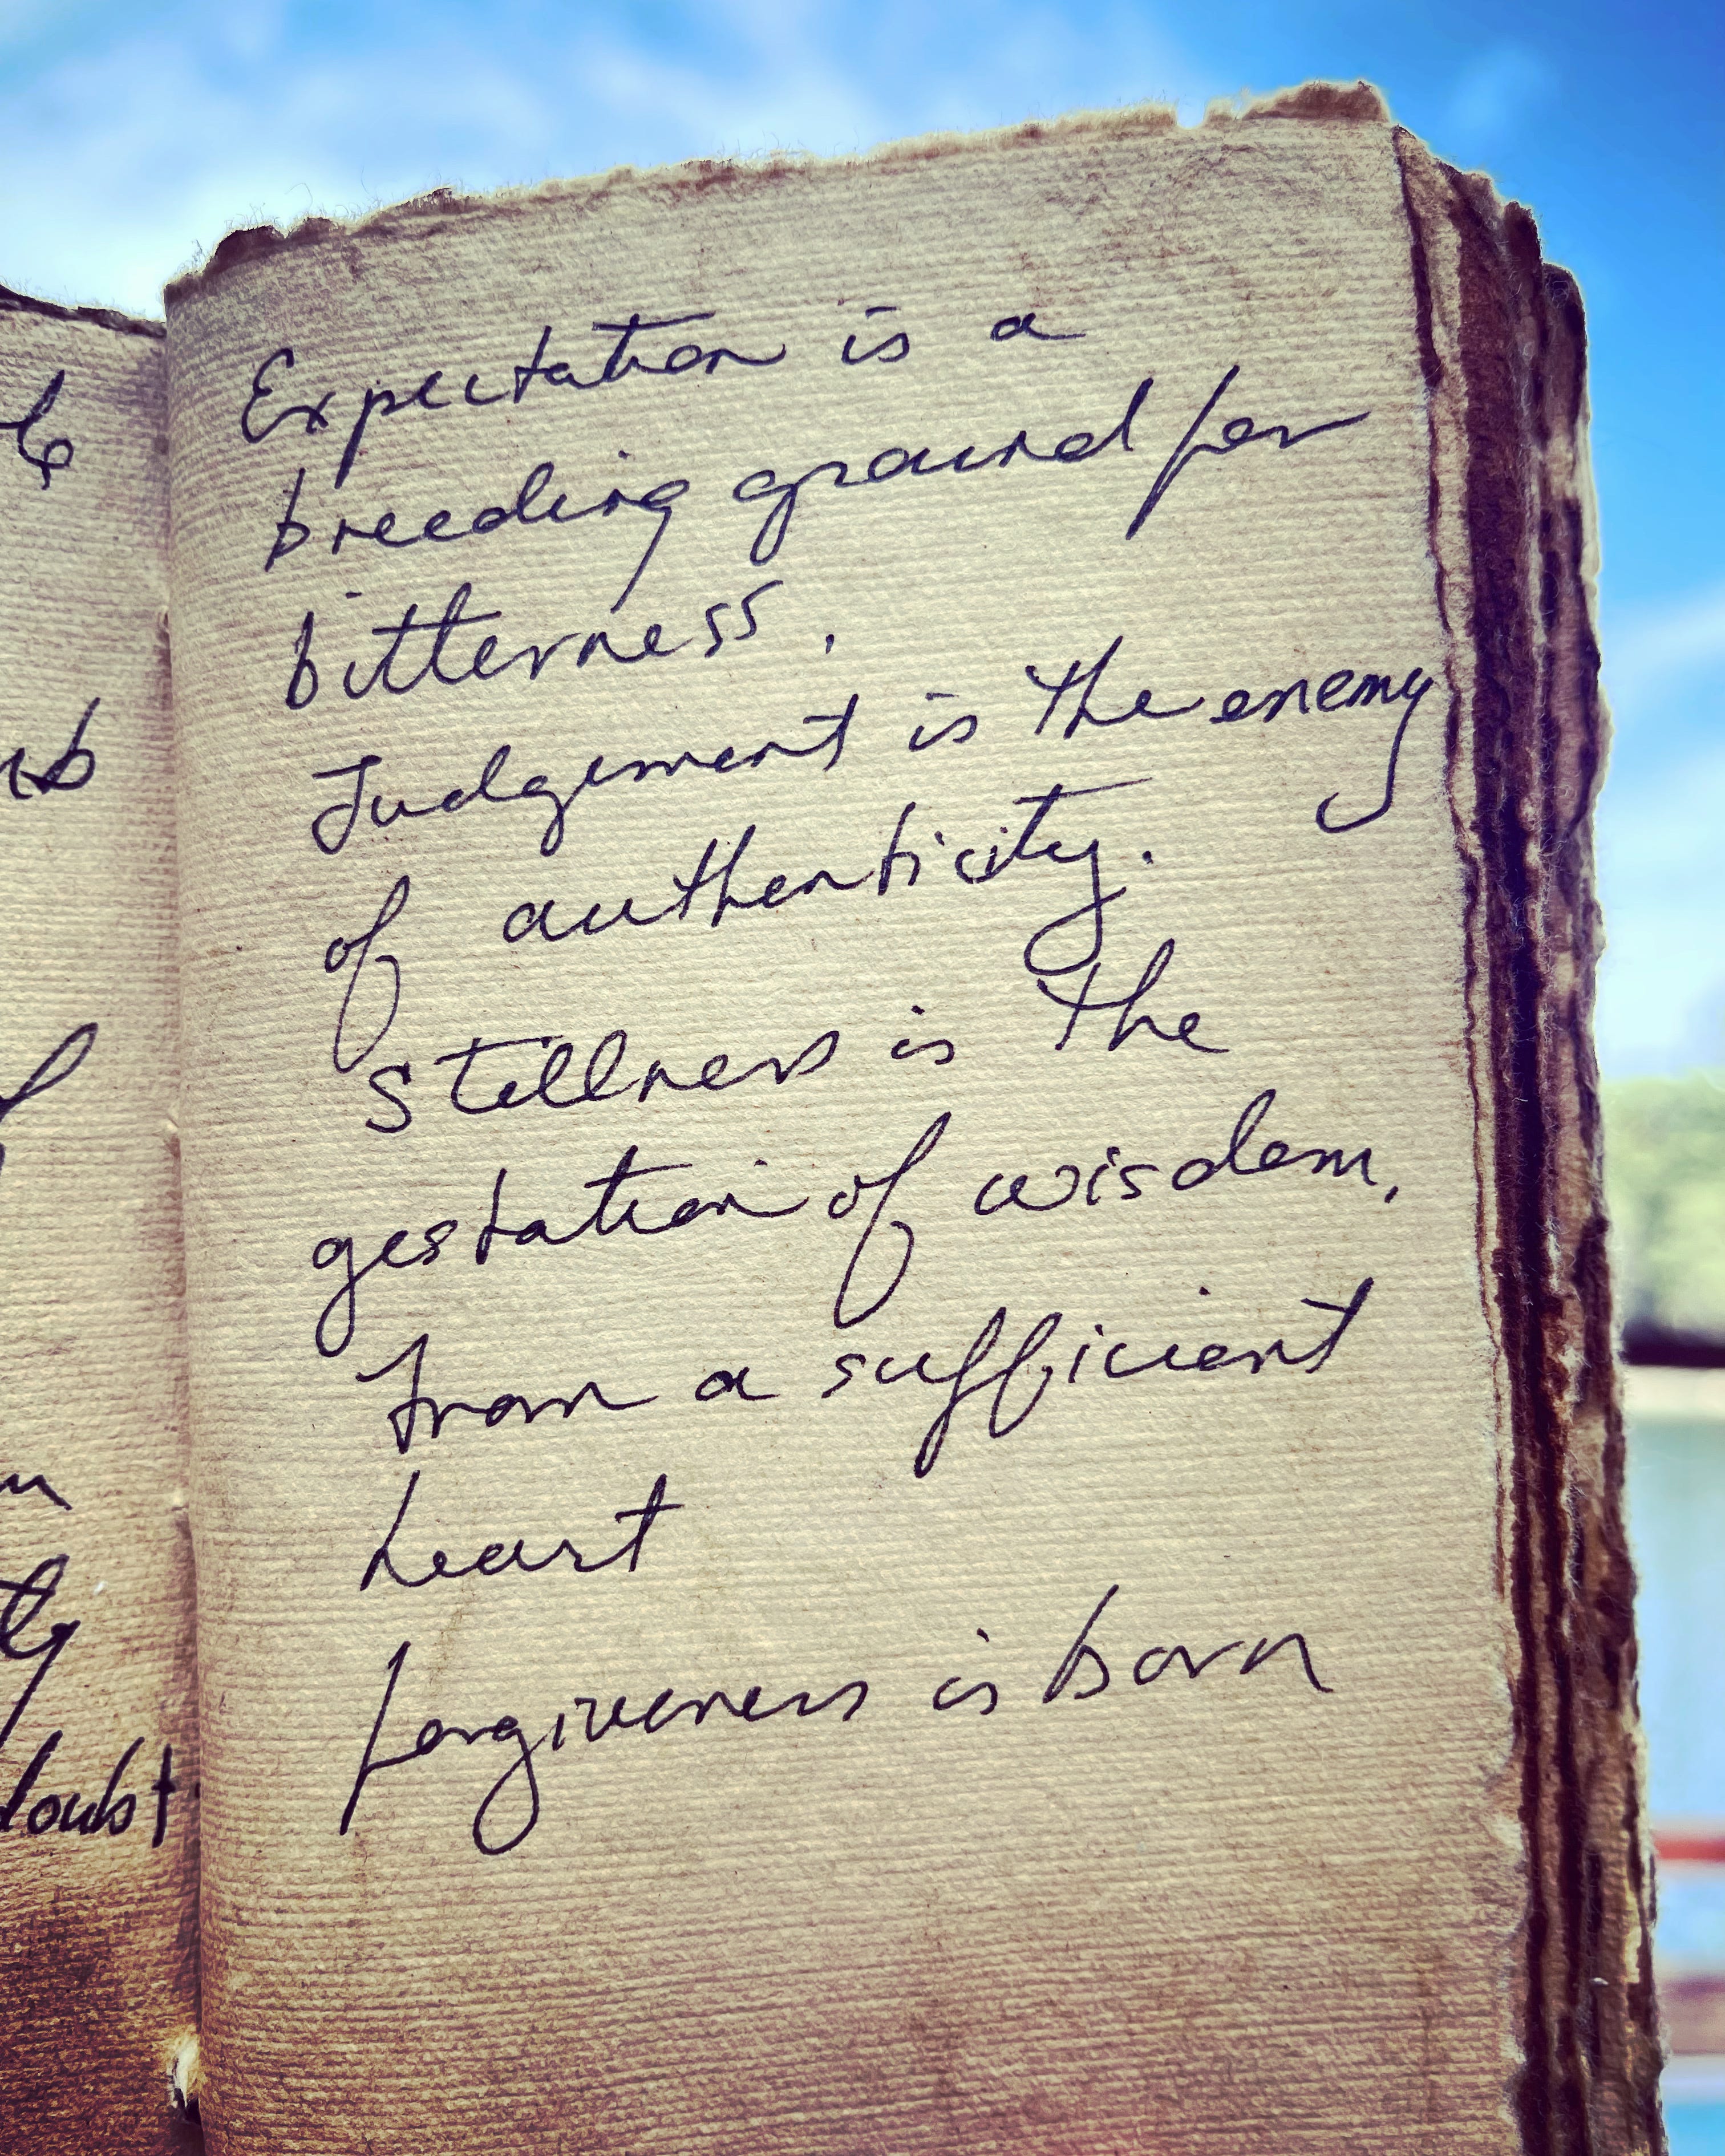 Expectation is a
breeding ground for
bitterness.
Judgement is the enemy
of authenticity.
Stillness is the
gestation of wisdom.
From a sufficient
heart
forgiveness is born
doubt